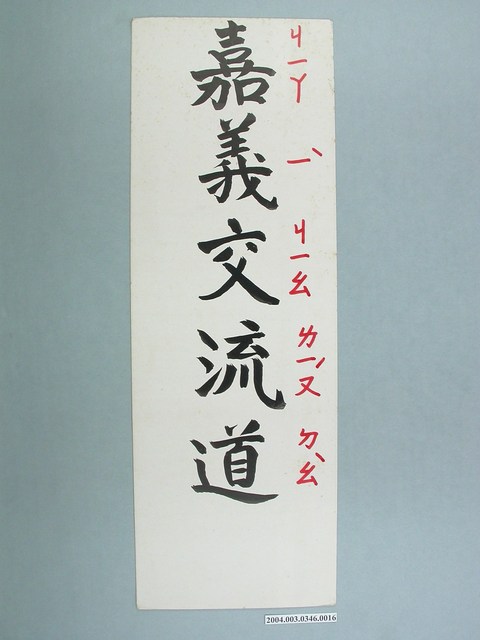 嘉義交流道
ㄐㄧㄚ ㄧˋ ㄐㄧㄠ ㄌㄧㄡˊ ㄉㄠˋ
2004.003.0346.0016